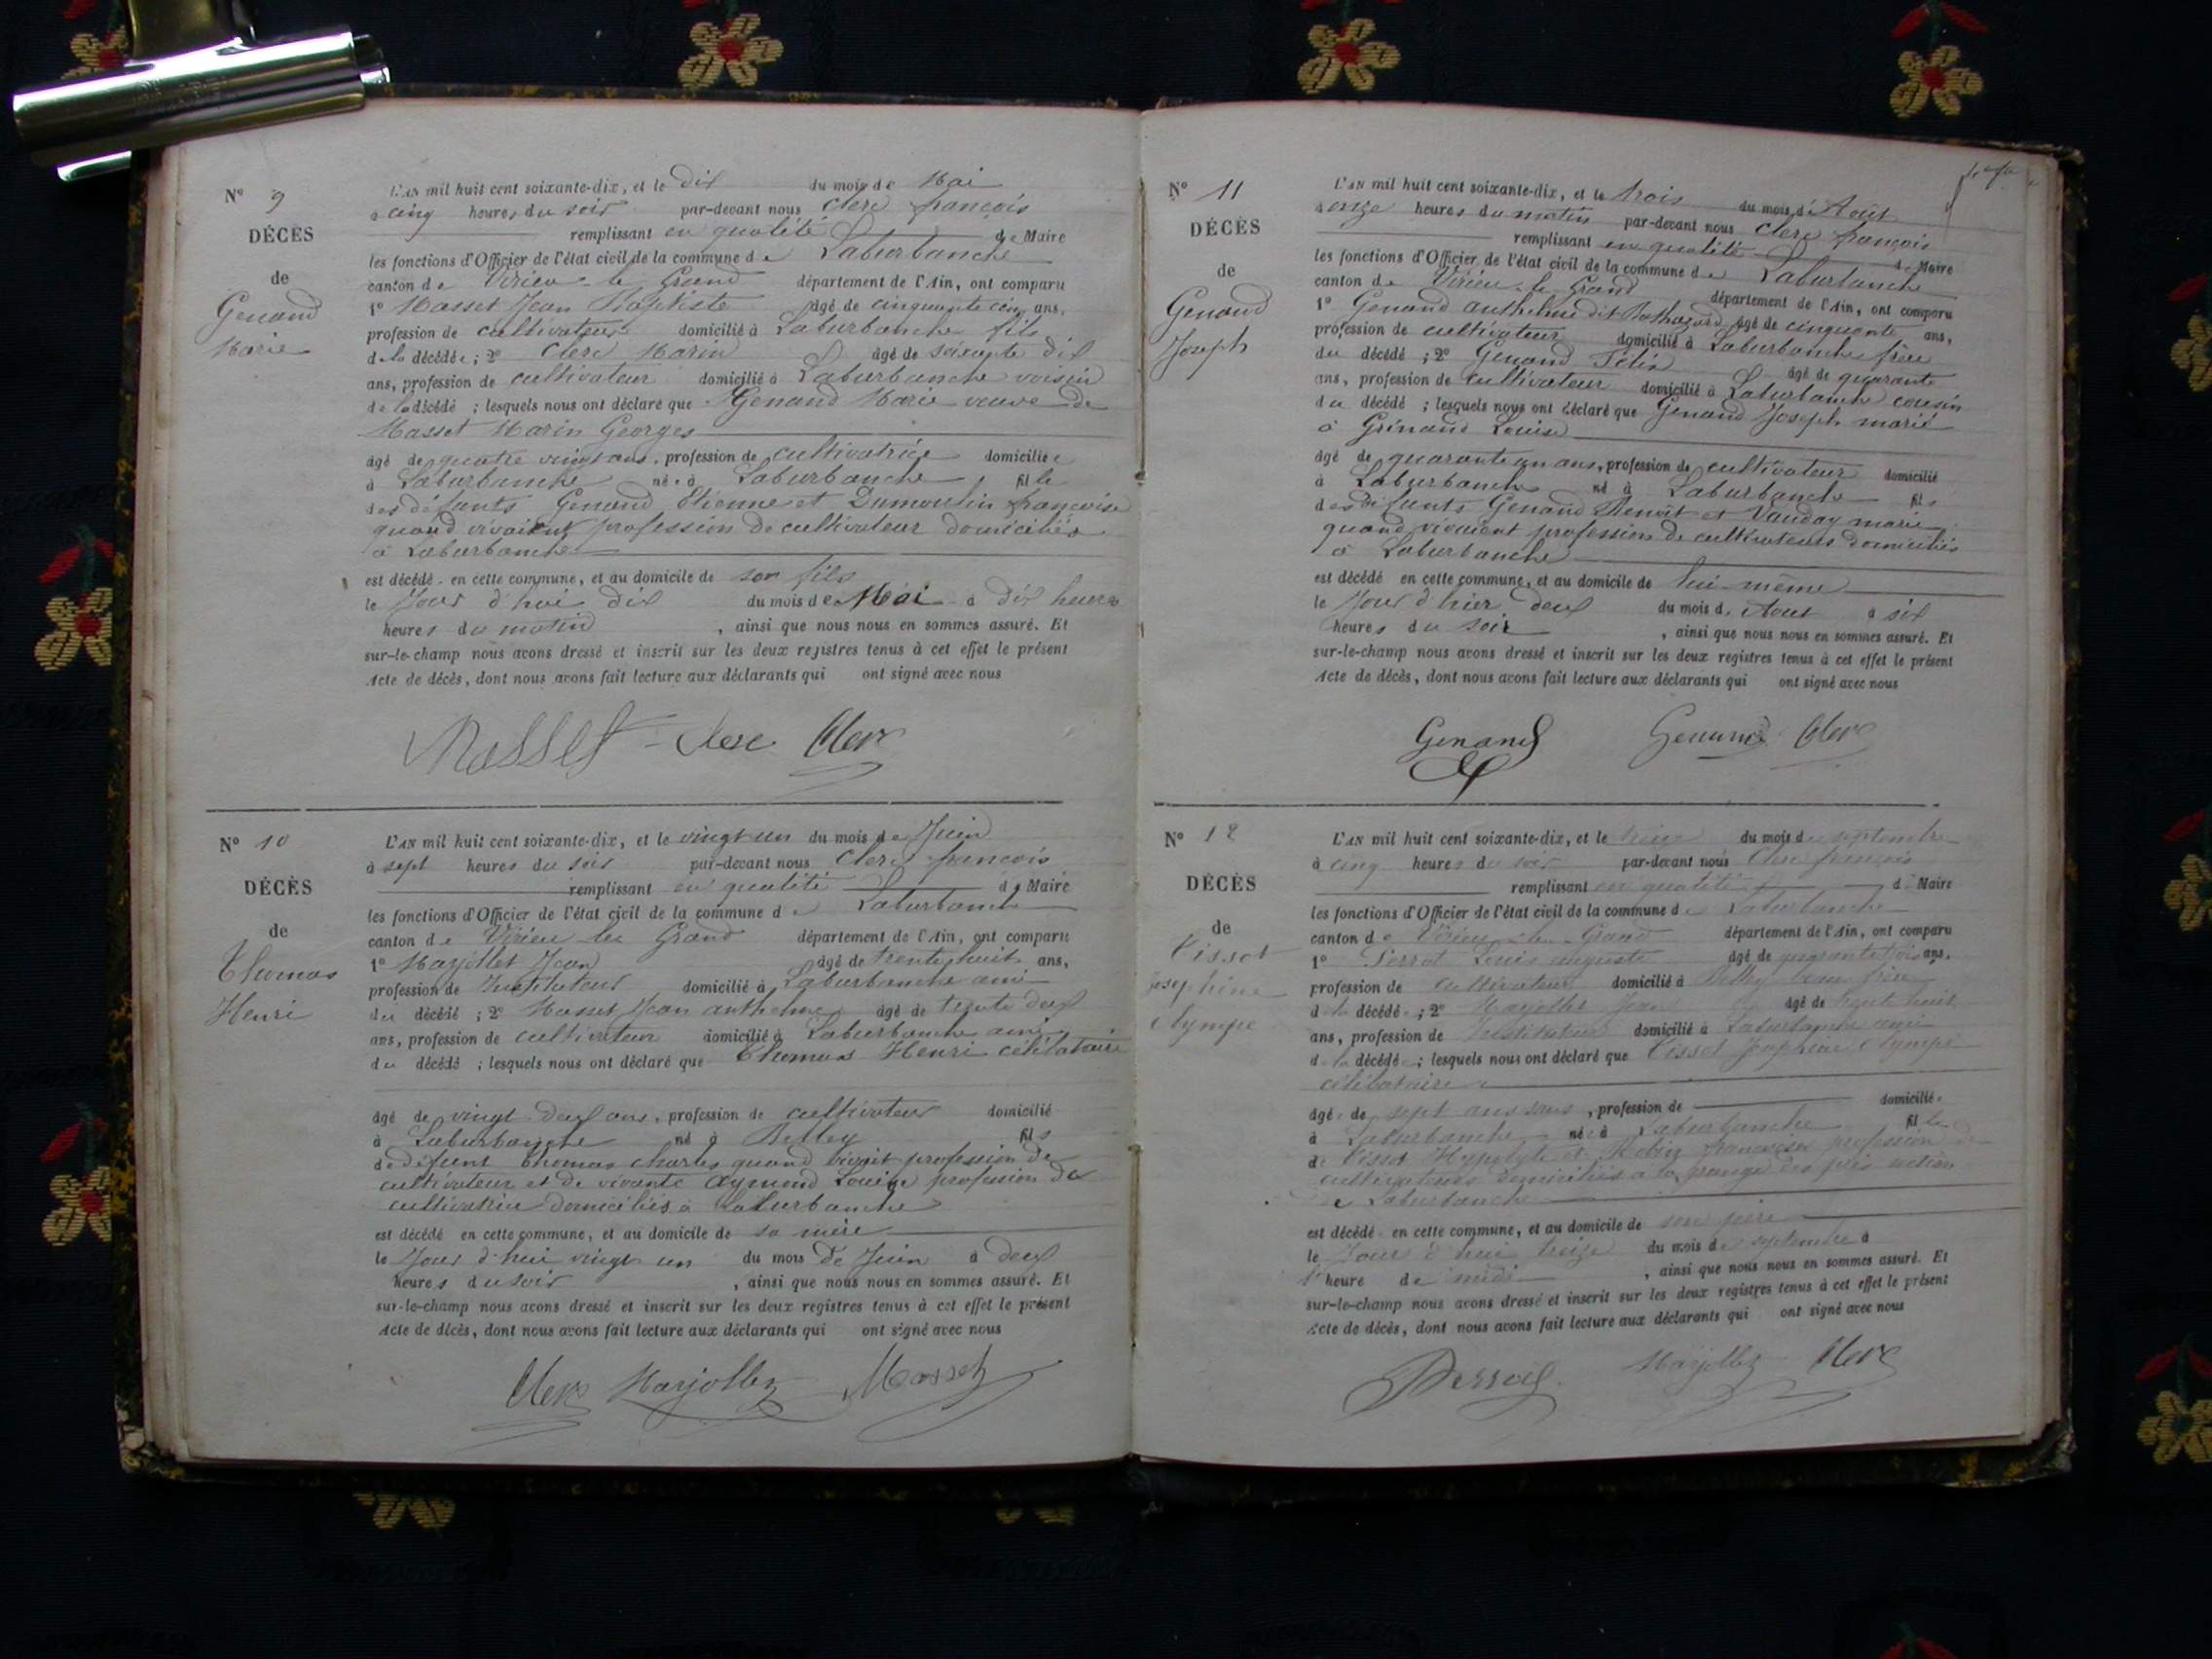 N° 9
DÉCÈS
de
Genand
Marie
L'AN mil huit cent soixante-dix, et le dix du mois de Mai
à cinq heures du soir par-devant nous Clerc françois
remplissant en qualité de Maire
les fonctions d'Officier de l'état civil de la commune de Laburbanche
canton de Virieu le Grand département de l'Ain, ont comparu
1° Masset Jean Baptiste âgé de cinquante cinq ans,
profession de cultivateur domicilié à Laburbanche fils
de la décédée ; 2° Clerc Marin âgé de soixante dix
ans, profession de cultivateur domicilié à Laburbanche voisin
de la décédé ; lesquels nous ont déclaré que Genand Marie veuve de
Masset Marin Georges
âgé de quatre vingt ans, profession de cultivatrice domiciliée
à Laburbanche née à Laburbanche fille
des défunts Genand Etienne et Dumoulin françoise
quand vivaient profession de cultivateur domiciliés
à Laburbanche
est décédé en cette commune, et au domicile de son fils
le Jour d'hui dix du mois de Mai à dix heures
heures du matin , ainsi que nous nous en sommes assuré. Et
sur-le-champ nous avons dressé et inscrit sur les deux registres tenus à cet effet le présent
Acte de décès, dont nous avons fait lecture aux déclarants qui ont signé avec nous
Masset Clerc Clerc
N° 10
DÉCÈS
de
Thomas
Henri
L'AN mil huit cent soixante-dix, et le vingt un du mois de Juin
à sept heures du soir par-devant nous Clerc françois
remplissant en qualité de Maire
les fonctions d'Officier de l'état civil de la commune de Laburbanche
canton de Virieu le Grand département de l'Ain, ont comparu
1° Marjollet Jean âgé de trente huit ans,
profession de Instituteur domicilié à Laburbanche ami
du décédé ; 2° Masset Jean anthelme âgé de trente deux
ans, profession de cultivateur domicilié à Laburbanche ami
du décédé ; lesquels nous ont déclaré que Thomas Henri célibataire
âgé de vingt deux ans, profession de cultivateur domicilié
à Laburbanche né à Belley fils
de défunt Thomas Charles quand vivait profession de
cultivateur et de vivante Aymond Louise profession de
cultivatrice domiciliés à Laburbanche
est décédé en cette commune, et au domicile de sa mère
le Jour d'hui vingt un du mois de Juin à deux
heures du soir , ainsi que nous nous en sommes assuré. Et
sur-le-champ nous avons dressé et inscrit sur les deux registres tenus à cet effet le présent
Acte de décès, dont nous avons fait lecture aux déclarants qui ont signé avec nous
Clerc Marjollet Masset
N° 11
DÉCÈS
de
Genand
Joseph
L'AN mil huit cent soixante-dix, et le trois du mois d'Août
à onze heures du matin par-devant nous Clerc françois
remplissant en qualité de Maire
les fonctions d'Officier de l'état civil de la commune de Laburbanche
canton de Virieu le Grand département de l'Ain, ont comparu
1° Genand anthelme dit âgé de cinquante ans,
profession de cultivateur domicilié à Laburbanche frère
du décédé ; 2° Genand Félix âgé de quarante
ans, profession de cultivateur domicilié à Laburbanche cousin
du décédé ; lesquels nous ont déclaré que Genand Joseph marié
à Louise
âgé de quarante un ans, profession de cultivateur domicilié
à Laburbanche né à Laburbanche fils
des défunts Genand Benoît et Vauday marie
quand vivaient profession de cultivateurs domiciliés
à Laburbanche
est décédé en cette commune, et au domicile de lui-même
le Jour d'hier deux du mois d'Aout à six
heures du soir , ainsi que nous nous en sommes assuré. Et
sur-le-champ nous avons dressé et inscrit sur les deux registres tenus à cet effet le présent
Acte de décès, dont nous avons fait lecture aux déclarants qui ont signé avec nous
Genand Genand Clerc
N° 12
DÉCÈS
de
Tissot
Joséphine
Olympe
L'AN mil huit cent soixante-dix, et le treize du mois de septembre
à cinq heures du soir par-devant nous Clerc françois
remplissant en qualité de Maire
les fonctions d'Officier de l'état civil de la commune de Laburbanche
canton de Virieu le Grand département de l'Ain, ont comparu
1° Perrot Louis auguste âgé de quarante trois ans,
profession de cultivateur domicilié à Belley beau frère
de la décédée ; 2° Marjollet Jean âgé de trente huit
ans, profession de Instituteur domicilié à Laburbanche ami
de la décédée ; lesquels nous ont déclaré que Tissot Josephine Olympe
célibataire
âgée de sept ans sans , profession de domiciliée
à Laburbanche née à Laburbanche fille
de Tissot Hyppolyte et françoise profession de
cultivateurs domiciliés à la grange des prés section
de Laburbanche
est décédé en cette commune, et au domicile de son père
le Jour d'hui treize du mois de septembre à
l'heure de midi , ainsi que nous nous en sommes assuré. Et
sur-le-champ nous avons dressé et inscrit sur les deux registres tenus à cet effet le présent
Acte de décès, dont nous avons fait lecture aux déclarants qui ont signé avec nous
Perrot Marjollet Clerc